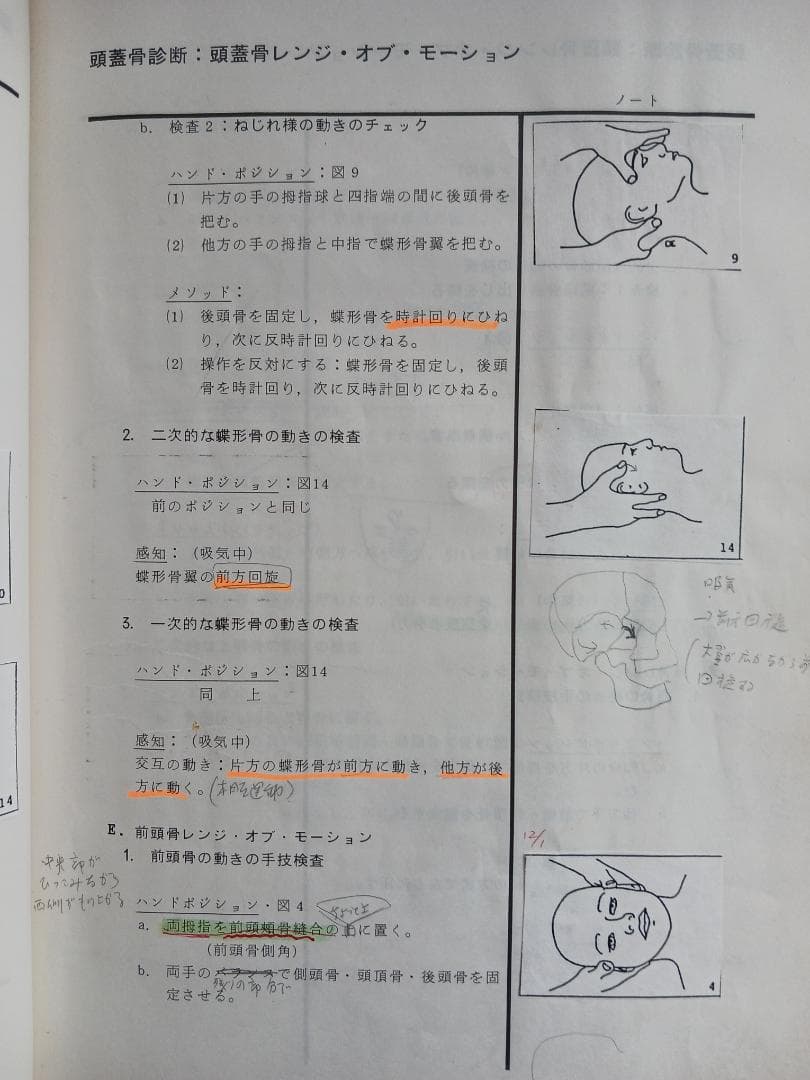 頭蓋骨診断：頭蓋骨レンジ・オブ・モーション
ノート
b. 検査2：ねじれ様の動きのチェック
ハンド・ポジション：図9
(1) 片方の手の拇指球と四指端の間に後頭骨を
把む。
(2) 他方の手の拇指と中指で蝶形骨翼を把む。
9
メソッド：
(1) 後頭骨を固定し，蝶形骨を時計回りにひね
り，次に反時計回りにひねる。
(2) 操作を反対にする：蝶形骨を固定し，後頭
骨を時計回り，次に反時計回りにひねる。
2. 二次的な蝶形骨の動きの検査
ハンド・ポジション：図14
前のポジションと同じ
14
感知：（吸気中）
蝶形骨翼の前方回旋
吸気
→前方回旋
回旋する
3. 一次的な蝶形骨の動きの検査
ハンド・ポジション：図14
同 上
感知：（吸気中）
交互の動き：片方の蝶形骨が前方に動き，他方が後
方に動く。（相互運動）
E. 前頭骨レンジ・オブ・モーション
1. 前頭骨の動きの手技検査
12/1
中央部が
ひっこみるから
両側がもり上がる
ハンドポジション・図4
a. 両拇指を前頭頬骨縫合の上に置く。
（前頭骨側角）
b. 両手ので側頭骨・頭頂骨・後頭骨を固
残りの部分で
定させる。
4
0
14